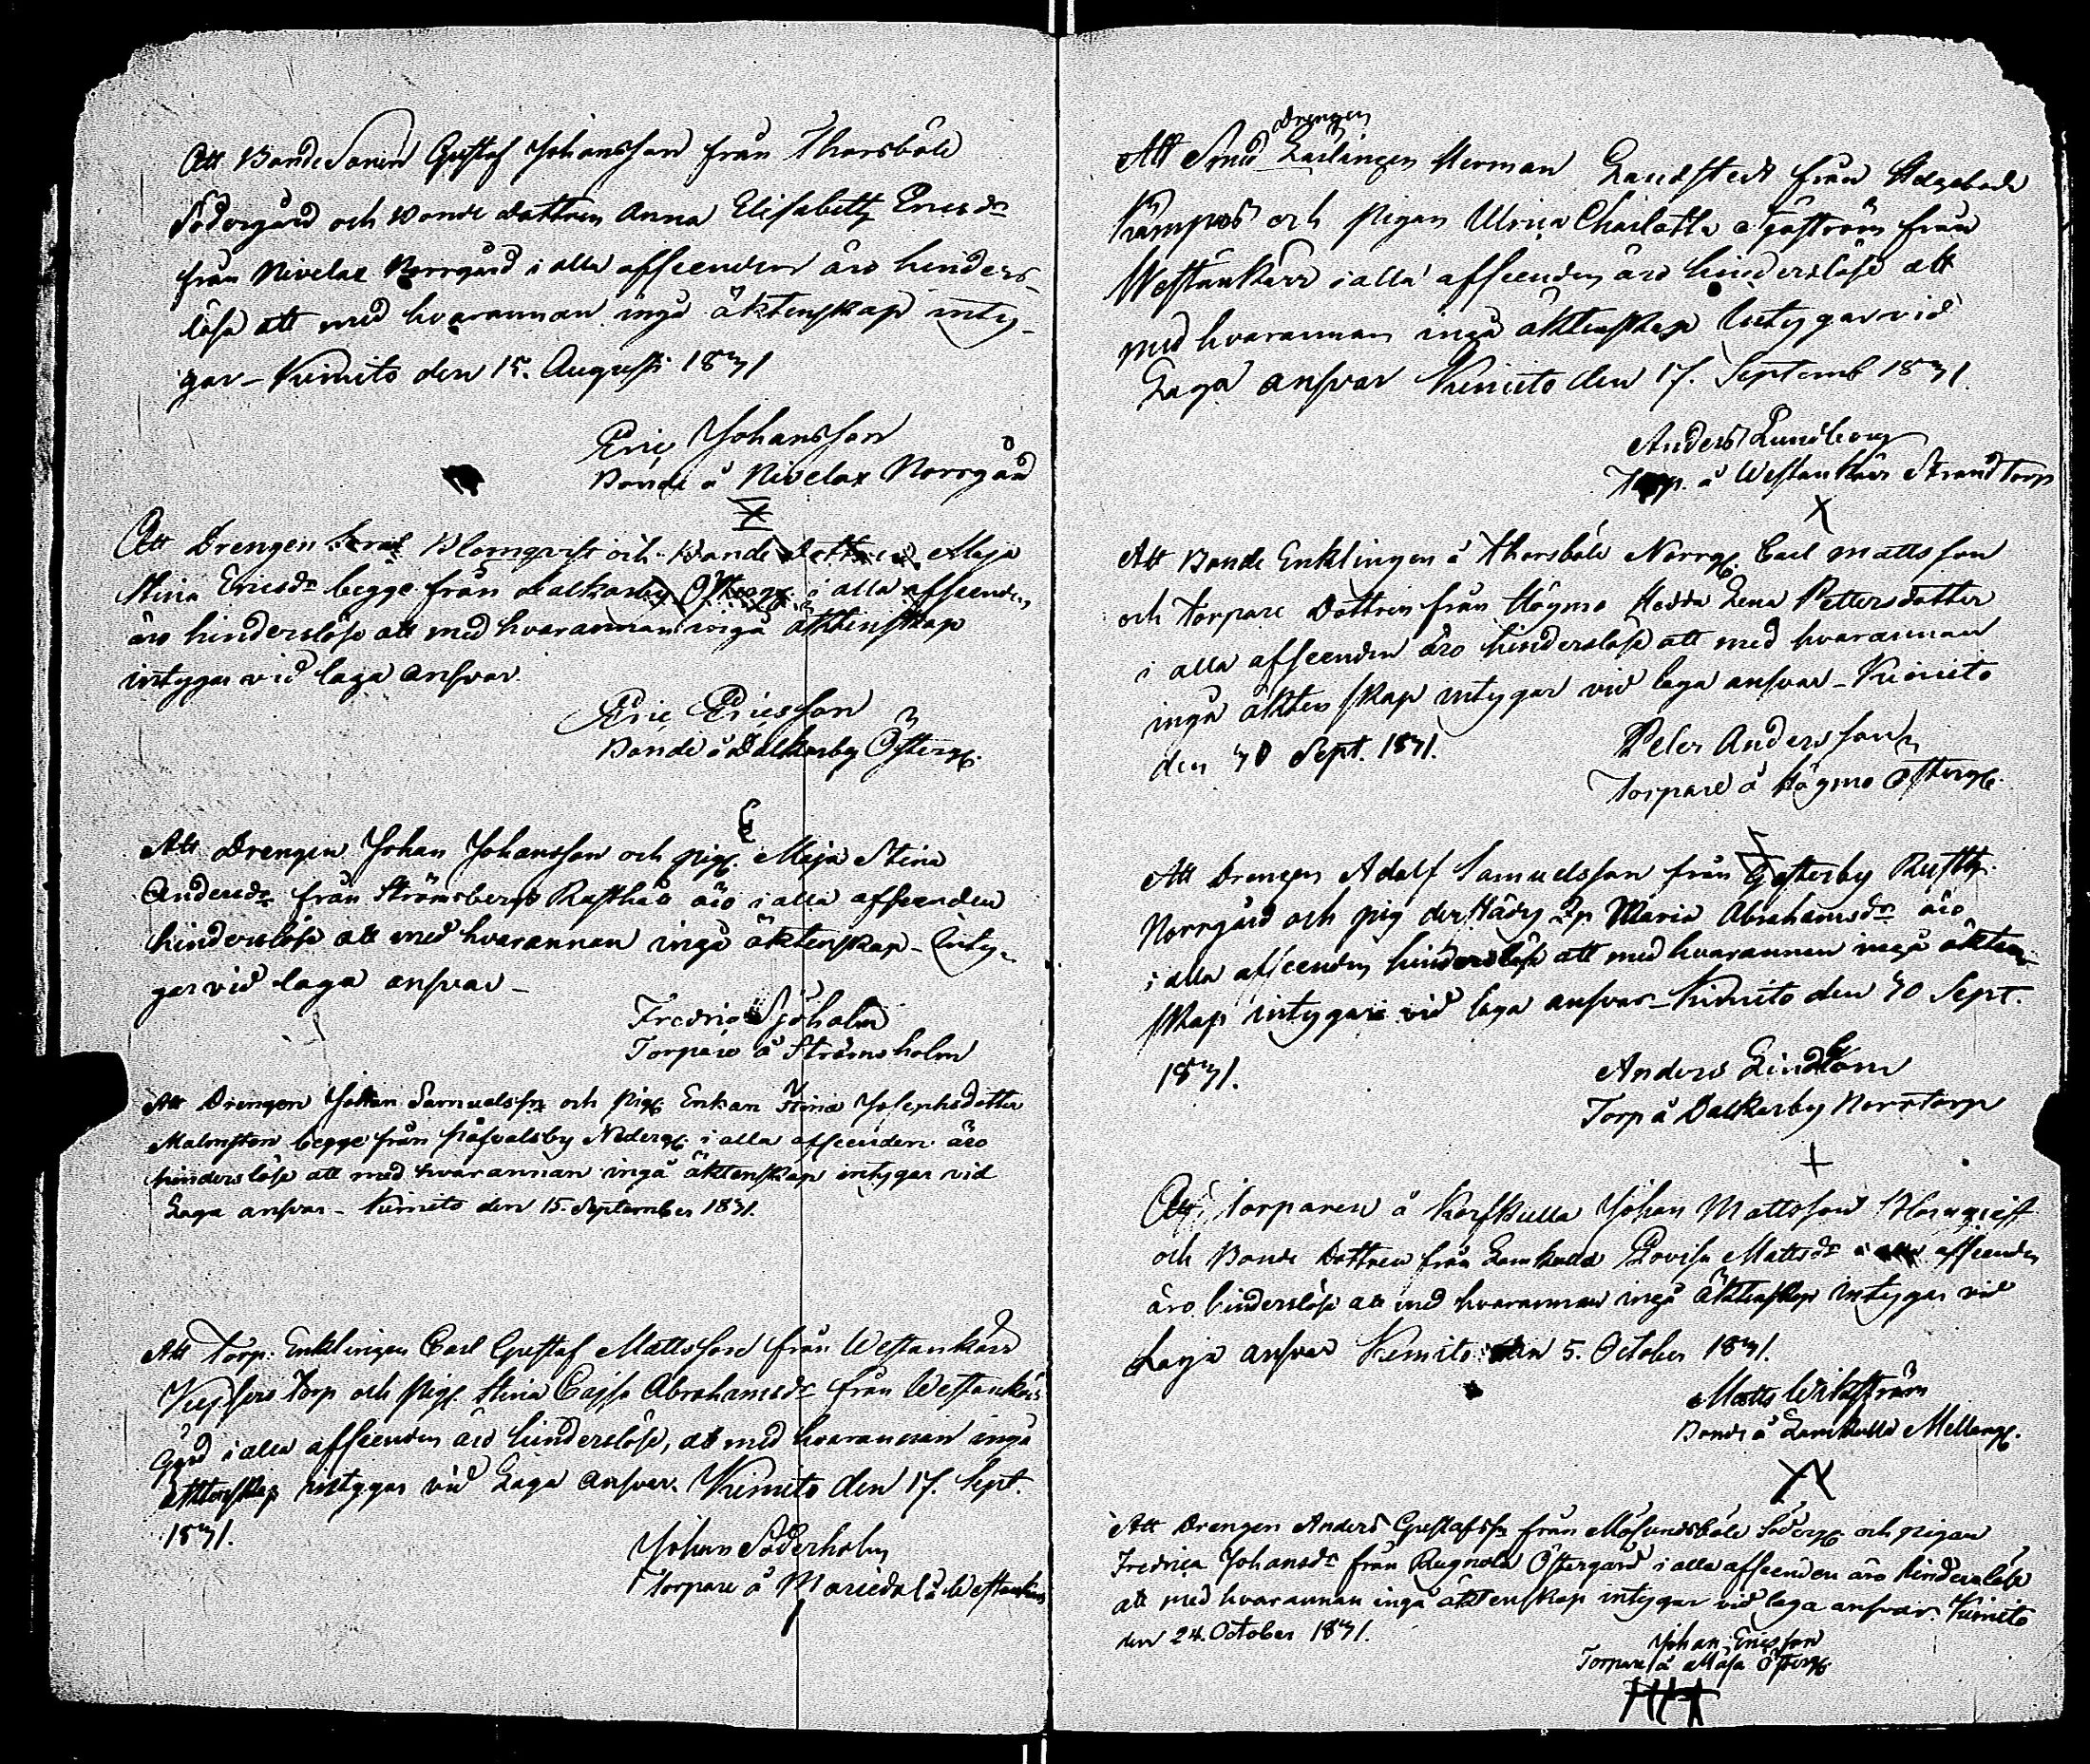 Att Bonde Sonen Gustaf Johansson från Thorsböle
Södergård och Bonde dottren Anna Elisabeth Ericsdr
från Nivelax Norrgård i alla afseenden äro hinders-
lösa att med hvarannan ingå äktenskap inty-
gar – Kimito den 15. Augusti 1831
Eric Johansson
Bonde å Nivelax Norrgård
Att Drengen Blomqvist och Bonde Dottren Maja
Stina Ericsdr begge från Dalkarby Österg. i alla afseenden
äro hinderslösa att med hvarannan ingå äktenskap
intygar vid laga ansvar.
Eric Ericsson
Bonde å Dalkarby Österg.
Att Drengen Johan Johansson och pig. Maja Stina
Andersdr från Strömsbergs Rusthåll äro i alla afseenden
hinderslösa att med hvarannan ingå äktenskap – Inty-
gar vid laga ansvar –
Fredric Sjöholm
Torpare å Strömsholm
Att Drengen Johan Samuelsson och Pig. Enkan Stina Josephsdotter
Malmsten begge från Näderg. i alla afseenden äro
hinderslösa att med hvarannan ingå äktenskap intygar vid
Laga ansvar – Kimito den 15. September 1831.
Att Torp. Enklingen Carl Gustaf Mattsson från Westankärr
Torp och Pig. Stina Cajsa Abrahamsdr från Westankärr
Gård i alla afseenden äro hinderslösa, att med hvarannan ingå
äktenskap intygar vid Laga ansvar. Kimito den 17. Sept.
1831.
Johan Söderholm
Torpare å Mariedal å Westankärr
Drengen
Att Smed Lärlingen Herman Landstedt från Helgeboda
Kämpas och Pigan Ulrica Charlotta Sjöström från
Westankärr i alla afseenden äro hinderslösa att
med hvarannan ingå äktenskap Intygar vid
Laga ansvar Kimito den 17. Septemb 1831.
Anders Lundberg
Torp. å Westankärr Strandtorp
Att Bonde Enklingen å Thorsböle Norrg. Carl Mattsson
och Torpare Dottren från Högmo Hedda Lena Pettersdotter
i alla afseenden äro hinderslösa att med hvarannan
ingå äktenskap intygar vid laga ansvar – Kimito
den 30 Sept. 1831.
Peter Andersson
Torpare å Högmo Österg.
Att Drengen Adolf Samuelsson från Gesterby Rusth.
Norrgård och pig Maria Abrahamsdr äro
i alla afseenden hinderslösa att med hvarannan ingå äkten-
skap intygar vid laga ansvar – Kimito den 30 Sept.
1831.
Anders Lindblom
Torp å Dalkarby Norrtorp
Att Torparen å Korskulla Johan Mattsson Blomqvist
och Bonde Dottren från Lamkulla Lovisa Mattsdr i alla afseenden
äro hinderslösa att med hvarannan ingå äktenskap intygar vid
Laga ansvar Kimito den 5. October 1831.
Matts Wikström
Bonde å Lamkulla Mellang.
Att Drengen Anders Gustafsson från Mösundsböle Söderg. och pigan
Fredrica Johansdr från Rugnola Östergård i alla afseenden äro hinderslösa
att med hvarannan ingå äktenskap intygar vid laga ansvar. Kimito
den 24. October 1831.
Johan Ericsson
Torpare å Måsa Österg.